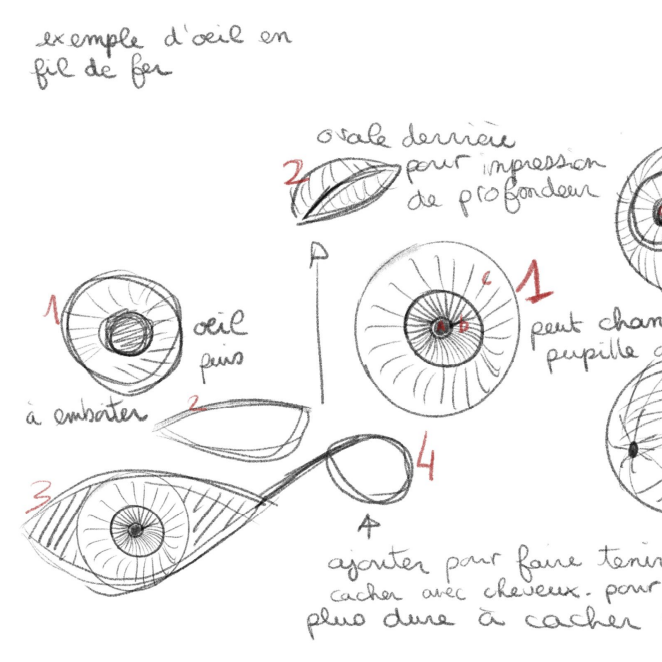 exemple d'oeil en
fil de fer
ovale derrière
2 pour impression
de profondeur
1
c
a b
1
oeil
puis
peut chan
pupille
à emboiter
2
3
4
ajouter pour faire tenir
cacher avec cheveux. pour
plus dure à cacher